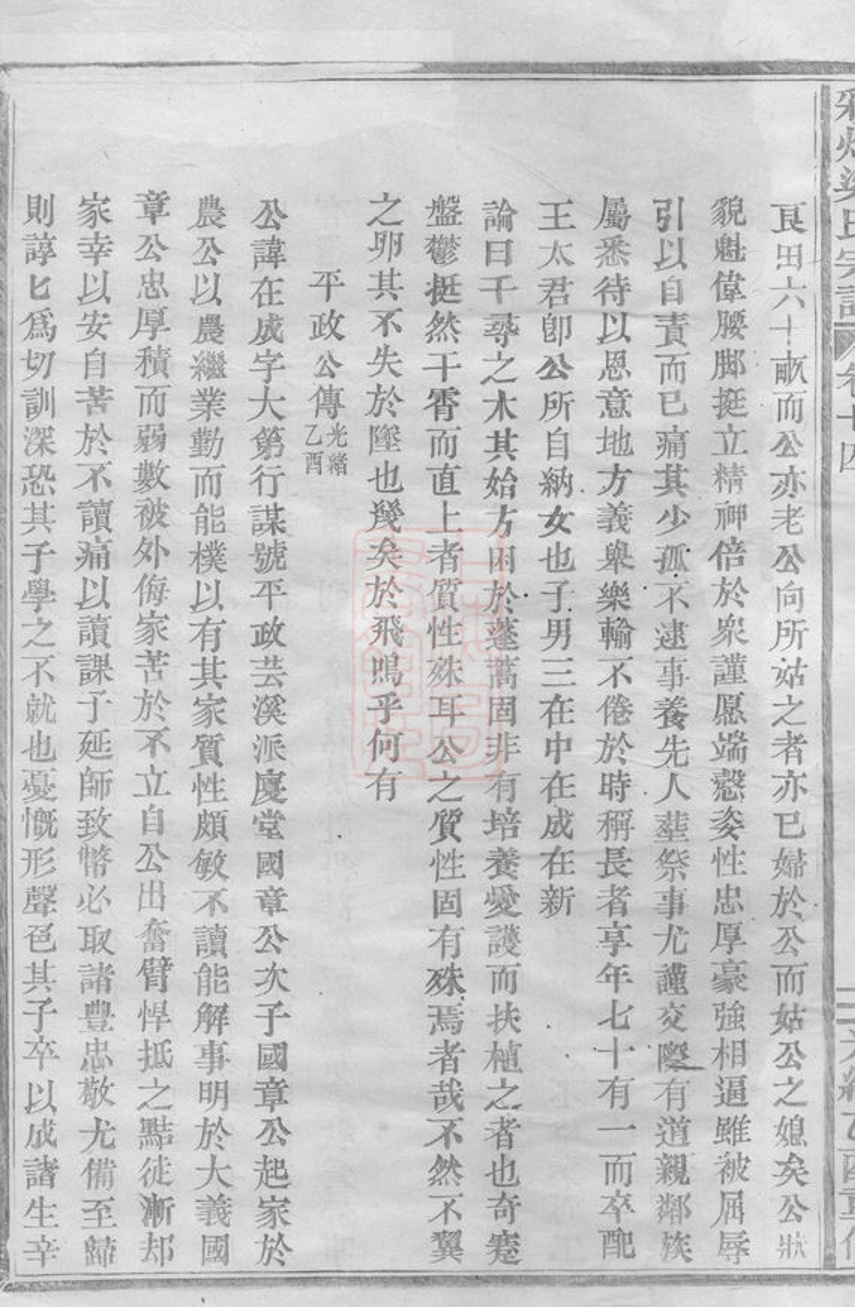 良田六十畝而公亦老公向所姑之者亦已婦於公而姑公之媳矣公狀
貌魁偉腰脚挺立精神倍於衆謹愿端慤姿性忠厚豪強相逼雖被屈辱
引以自責而已痛其少孤不逮事養先人塟祭事尤謹交際有道親鄰族
屬悉待以恩意地方義舉樂輸不倦於時稱長者享年七十有一而卒配
王太君卽公所自納女也子男三在中在成在新
論曰千尋之木其始方困於蓬蒿固非有培養愛護而扶植之者也奇蹇
盤鬱挺然干霄而直上者質性殊耳公之質性固有殊焉者哉不然不翼
之卵其不失於墜也幾矣於飛鳴乎何有
平政公傳光緒乙酉
公諱在成字大第行謀號平政芸溪派慶堂國章公次子國章公起家於
農公以農繼業勤而能樸以有其家質性頗敏不讀能解事明於大義國
章公忠厚積而弱數被外侮家苦於不立自公出奮臂悍抵之點徒漸却
家幸以安自苦於不讀痛以讀課子延師致幣必取諸豐忠敬尤備至歸
則諄匕爲切訓深恐其子學之不就也憂慨形聲色其子卒以成諸生辛